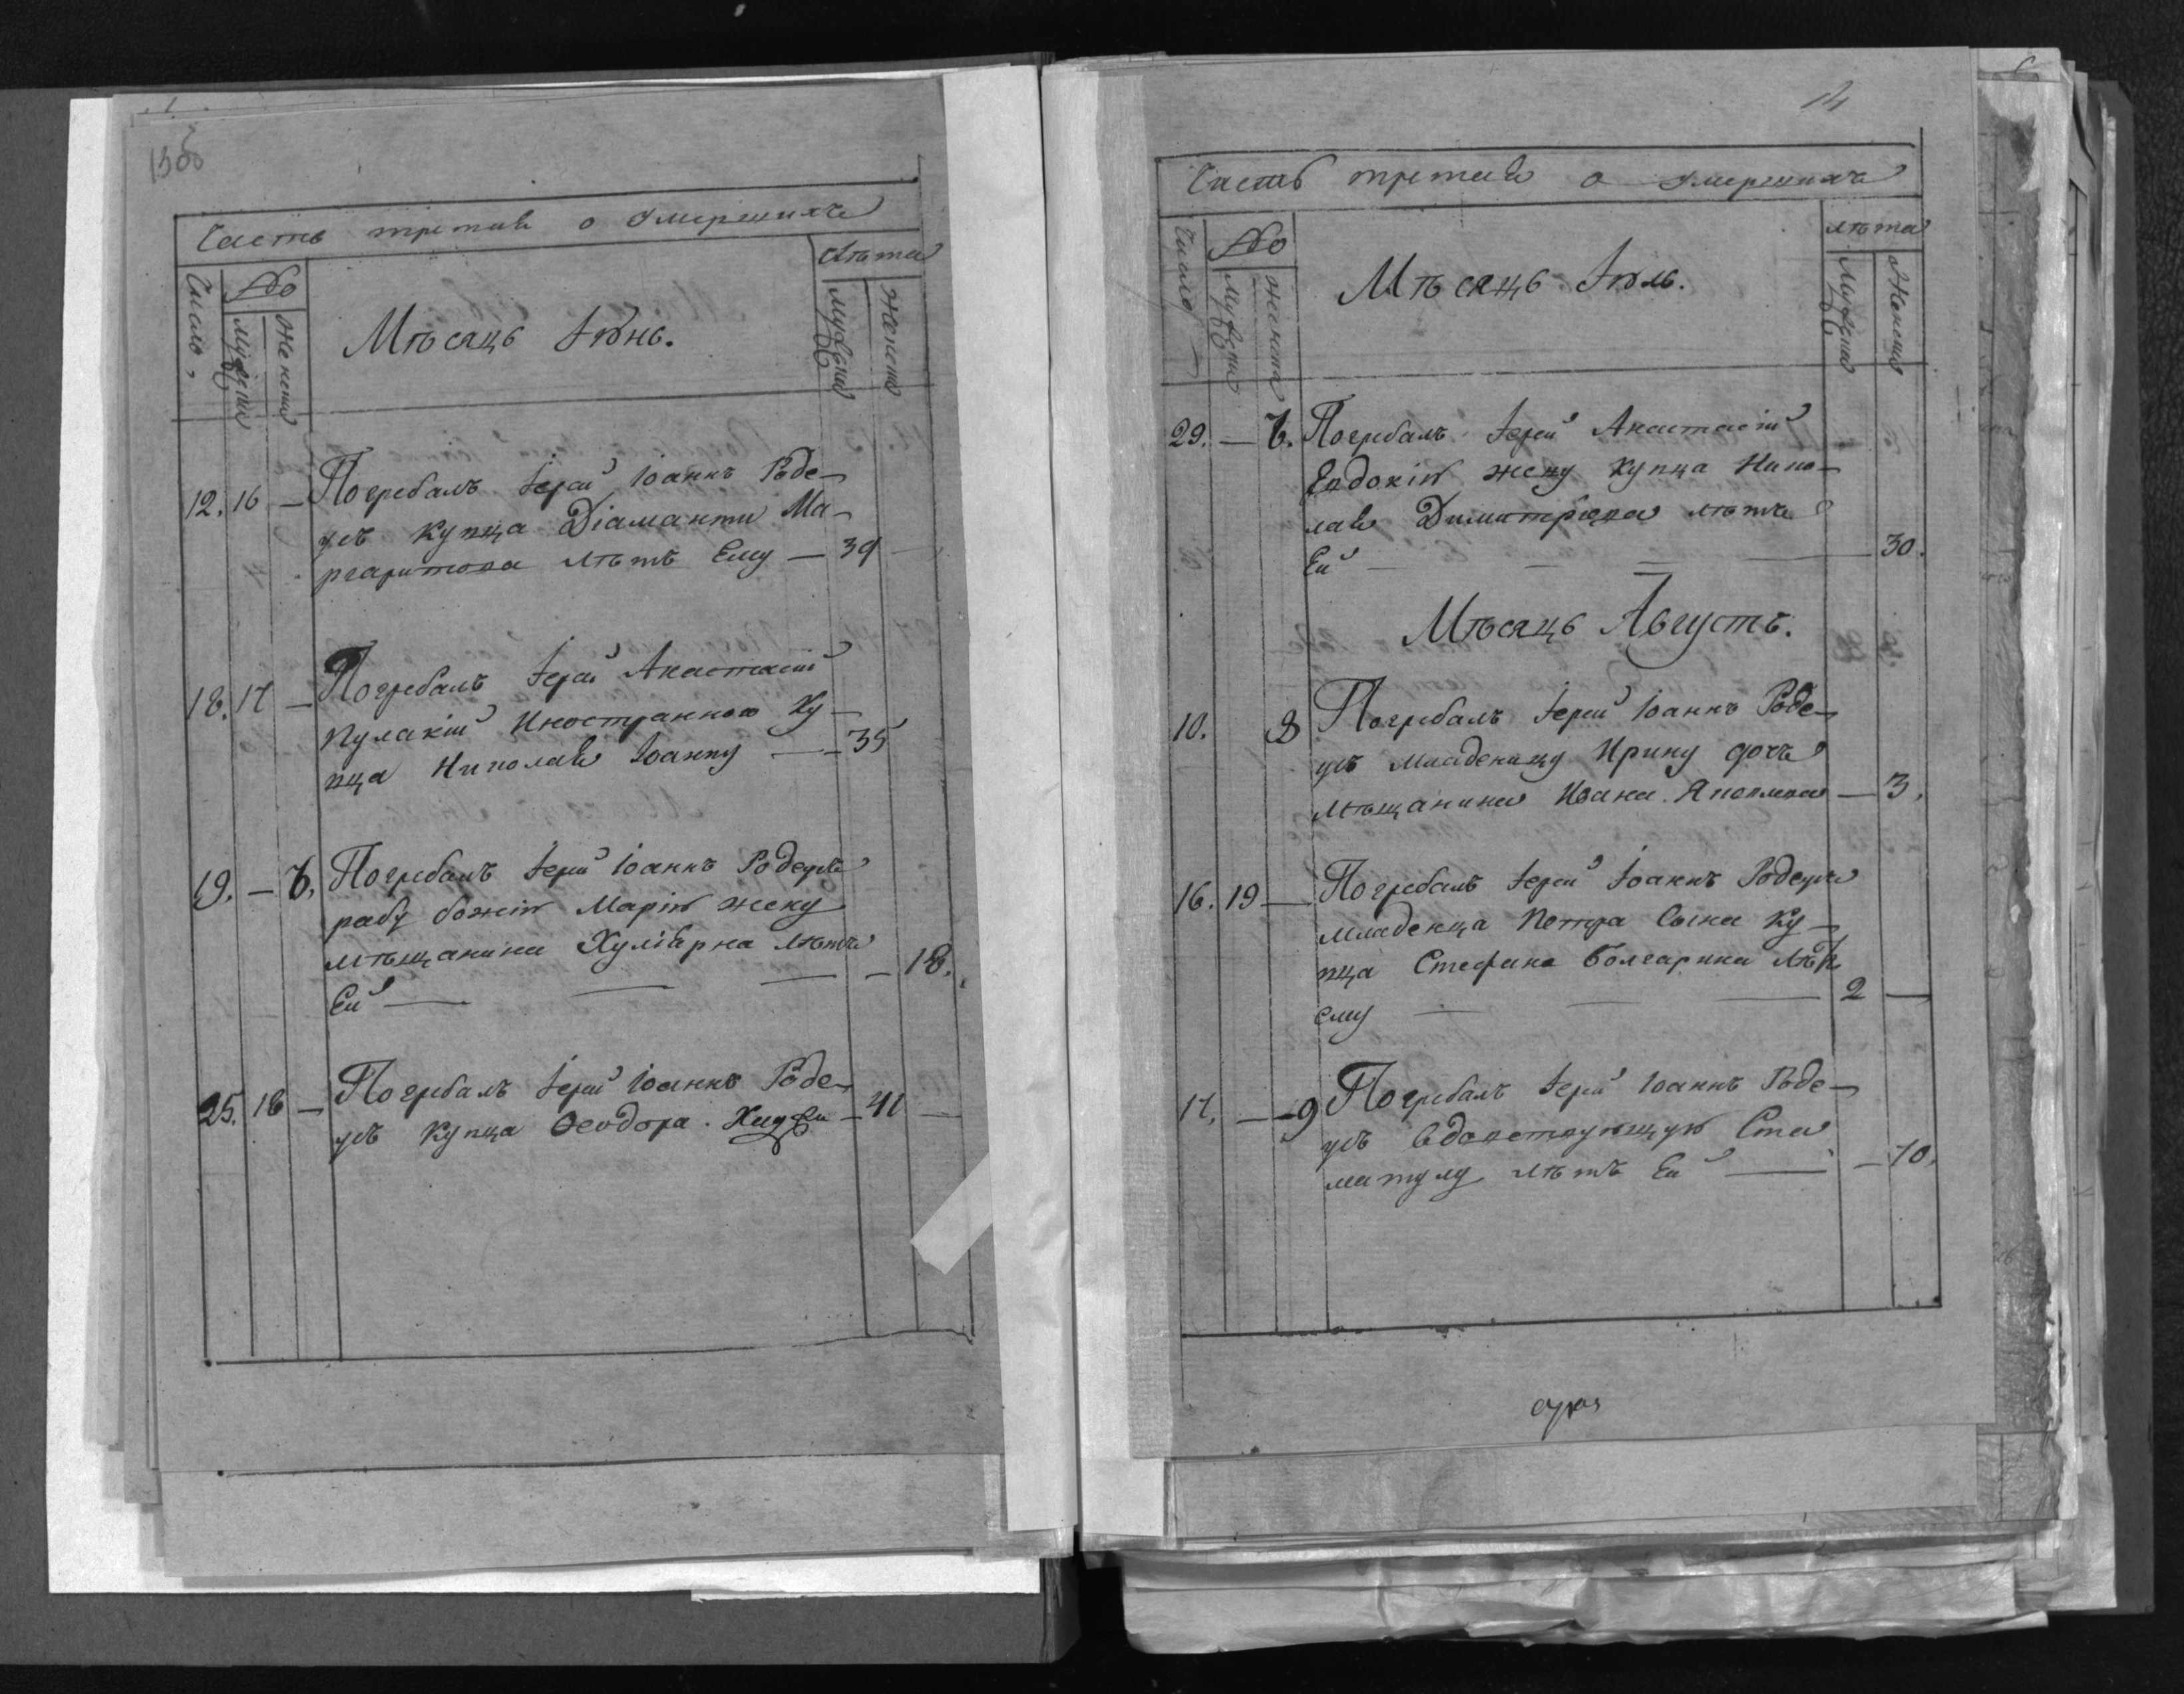 13об
Часть третия о Умершихъ
Число,
№
Мужеска
Женска
Мѣсяцъ Іюнь.
лѣта
Мужеска
Женска
12. 16 — Погребалъ Іерей Іоаннъ Роде-
усъ Купца Діаманти Ма-
ргаритова лѣтъ Ему — 39 —
18. 17 — Погребалъ Іерей Анастасій
Кулакій Иностраннаго Ку-
пца Николая Іоанну — 35
19. — 6. Погребалъ Іерей Іоаннъ Родеусъ
рабу божію Марію жену
мѣщанина лѣтъ
Ей — — — — 18.
25. 18 — Погребалъ Іерей Іоаннъ Роде-
усъ Купца Ѳеодора — 41 —
14
Часть третия о Умершихъ
Число
№
Мужеска
женска
Мѣсяцъ Іюль.
лѣта
Мужеска
Женска
29. — 7. Погребалъ Іерей Анастасій
Евдокію жену Купца Нико-
лая Димитріева лѣтъ
Ей — — — — 30.
Мѣсяцъ Августъ.
10. 8 Погребалъ Іерей Іоаннъ Роде-
усъ младеницу Ирину дочь
мѣщанина Ивана — 3.
16. 19 — Погребалъ Іерей Іоаннъ Родеусъ
младенца Петра Сына Ку-
пца Стефана Болгарина лѣтъ
ему — — — 2 —
17. — 9 Погребалъ Іерей Іоаннъ Роде-
усъ вдовствующую Ста
матулу лѣтъ Ей — — 70.